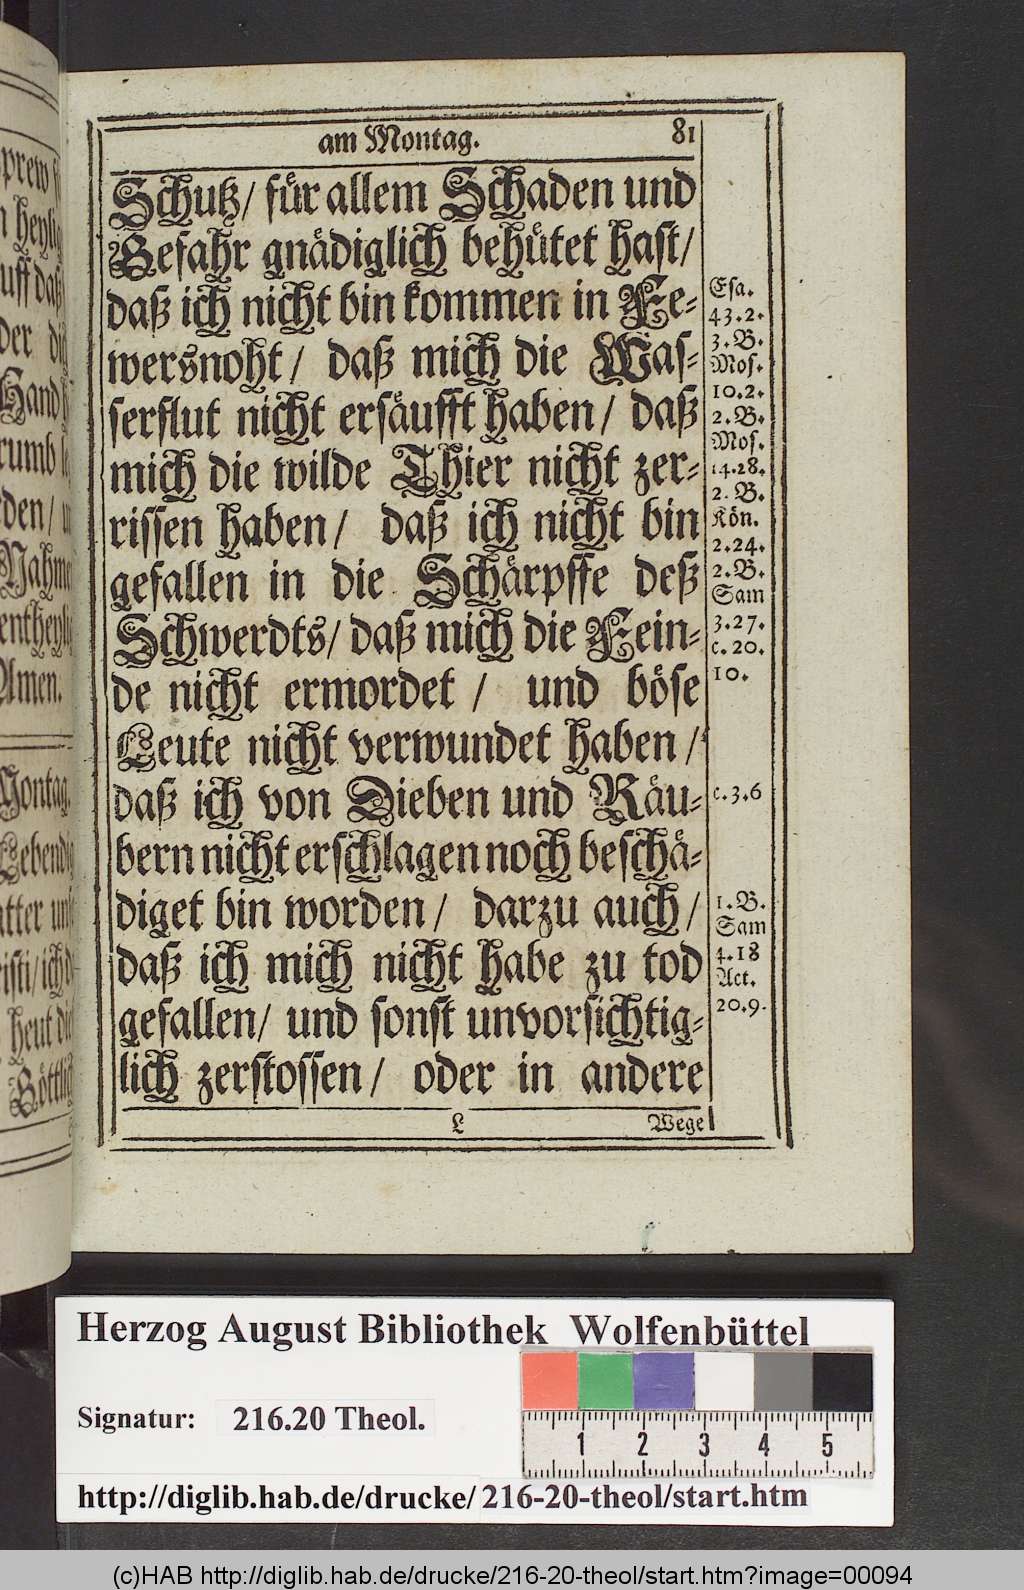 am Montag. 81
Schutz/ für allem Schaden und
Gefahr gnädiglich behütet hast/
daß ich nicht bin kommen in Fe-
wersnoht/ daß mich die Was-
serflut nicht ersäufft haben/ daß
mich die wilde Thier nicht zer-
rissen haben/ daß ich nicht bin
gefallen in die Schärpffe deß
Schwerdts/ daß mich die Fein-
de nicht ermordet / und böse
Leute nicht verwundet haben /
daß ich von Dieben und Räu-
bern nicht erschlagen noch beschä-
diget bin worden/ darzu auch/
daß ich mich nicht habe zu tod
gefallen/ und sonst unvorsichtig-
lich zerstossen/ oder in andere
L Wege
Esa.
43.2.
3.B.
Mos.
10.2.
2.B.
Mos.
14.28.
2.B.
Kön.
2.24.
2.B.
Sam
3.27.
c.20.
10.
c.3.6
1.B.
Sam
4.18
Act.
20.9.
prew
heylig
uff daß
der
Hand
rumb
den/
Nahme
Amen.
Montag.
Lebendig
isti/ ich
heut die
Göttlich
Herzog August Bibliothek Wolfenbüttel
Signatur: 216.20 Theol.
1 2 3 4 5
http://diglib.hab.de/drucke/216-20-theol/start.htm
(c)HAB http://diglib.hab.de/drucke/216-20-theol/start.htm?image=00094